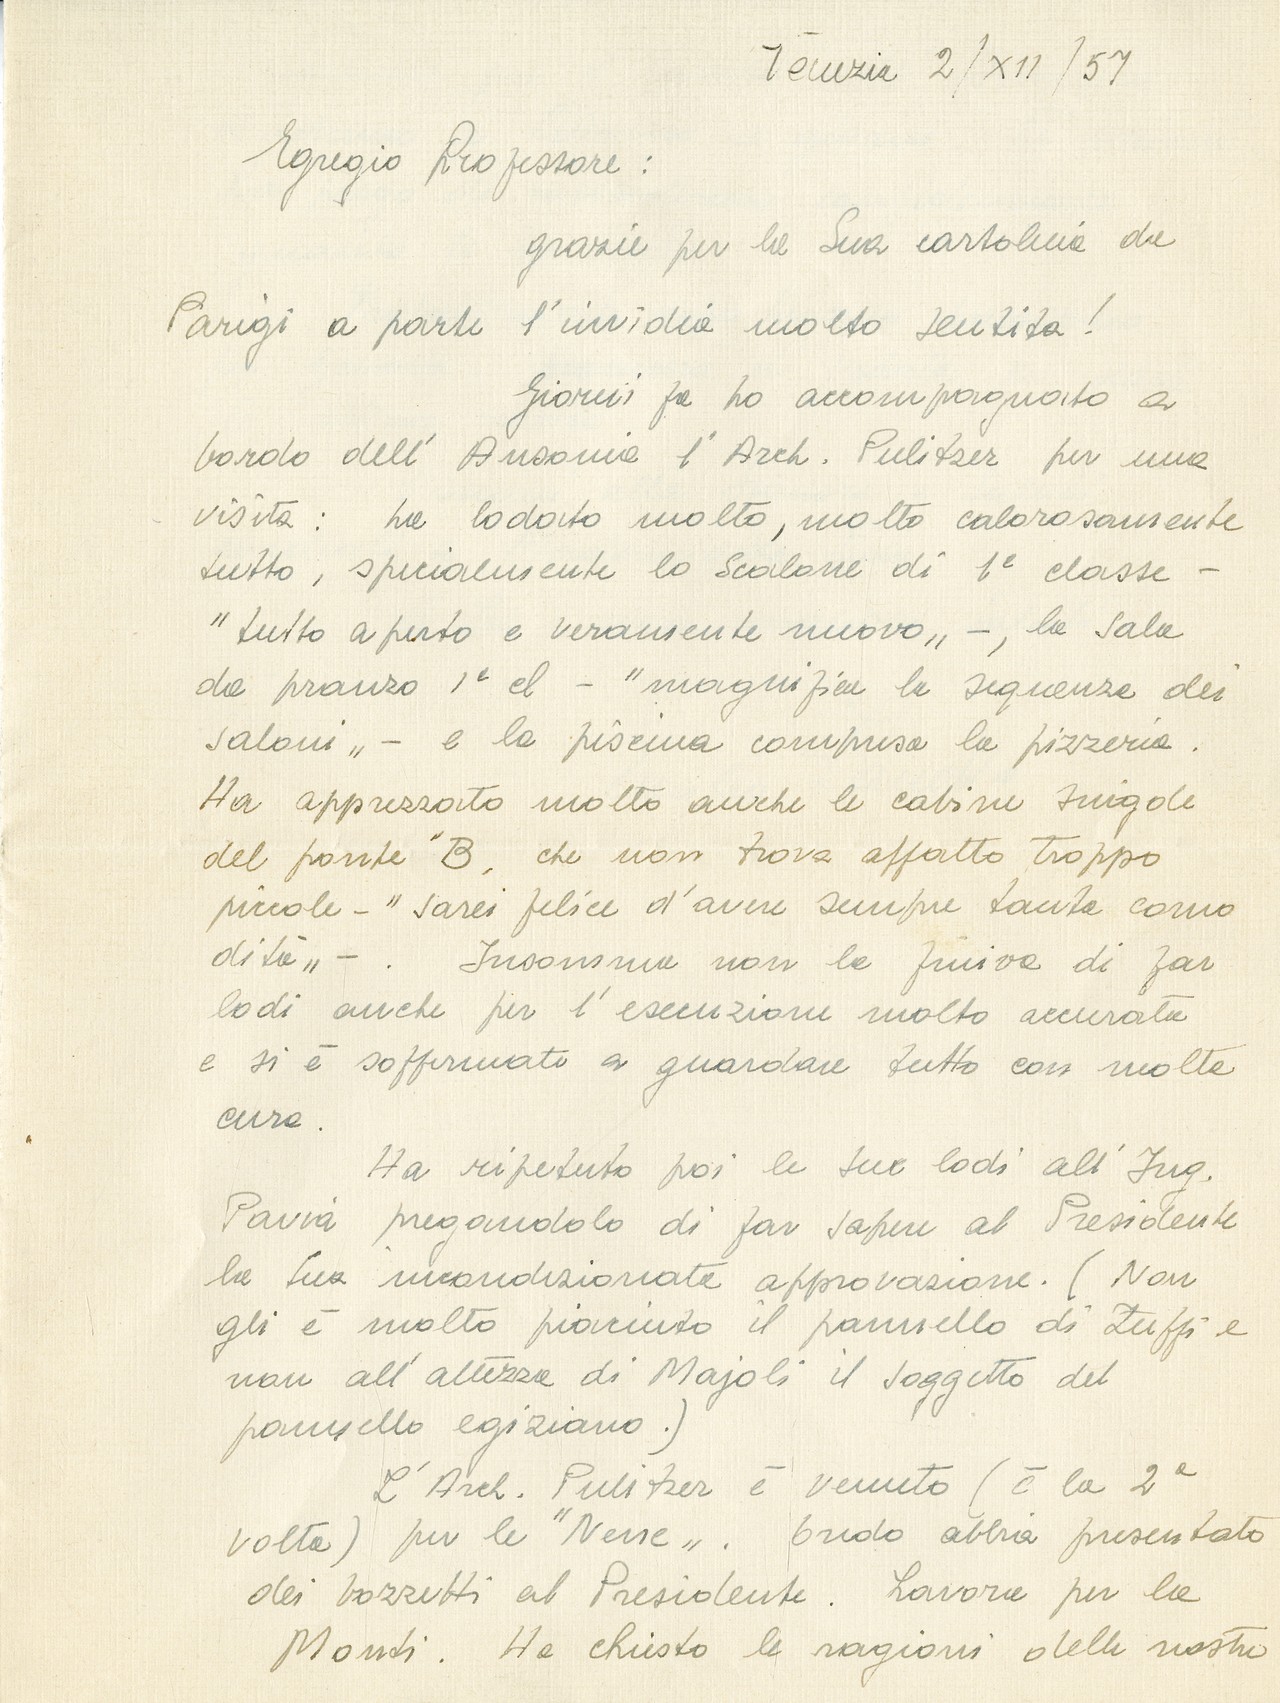 Venezia 2/XII/57
Egregio Professore:
grazie per la Sua cartolina da
Parigi a parte l'invidia molto sentita!
Giorni fa ho accompagnato a
bordo dell'Ausonia l'Arch. Pulitzer per una
visita: ha lodato molto, molto calorosamente
tutto, specialmente lo Scalone di 1ª classe –
"tutto aperto e veramente nuovo„ –, la sala
da pranzo 1ª cl – "magnifica la sequenza dei
saloni„ – e la piscina compresa la pizzeria.
Ha apprezzato molto anche le cabine singole
del ponte "B, che non trova affatto troppo
piccole – "sarei felice d'avere sempre tanta como
dità„ – . Insomma non la finiva di far
lodi anche per l'esecuzione molto accurata
e si è soffermato a guardare tutto con molta
cura.
Ha ripetuto poi le sue lodi all'Ing.
Pavia pregandolo di far sapere al Presidente
la Sua incondizionata approvazione. (Non
gli è molto piaciuto il pannello di Zuffi e
non all'altezza di Majoli il soggetto del
pannello egiziano.)
L'Arch. Pulitzer è venuto (è la 2ª
volta) per le "Nene„. Credo abbia presentato
dei bozzetti al Presidente. Lavora per la
Monti. Ha chiesto le ragioni delle nostre